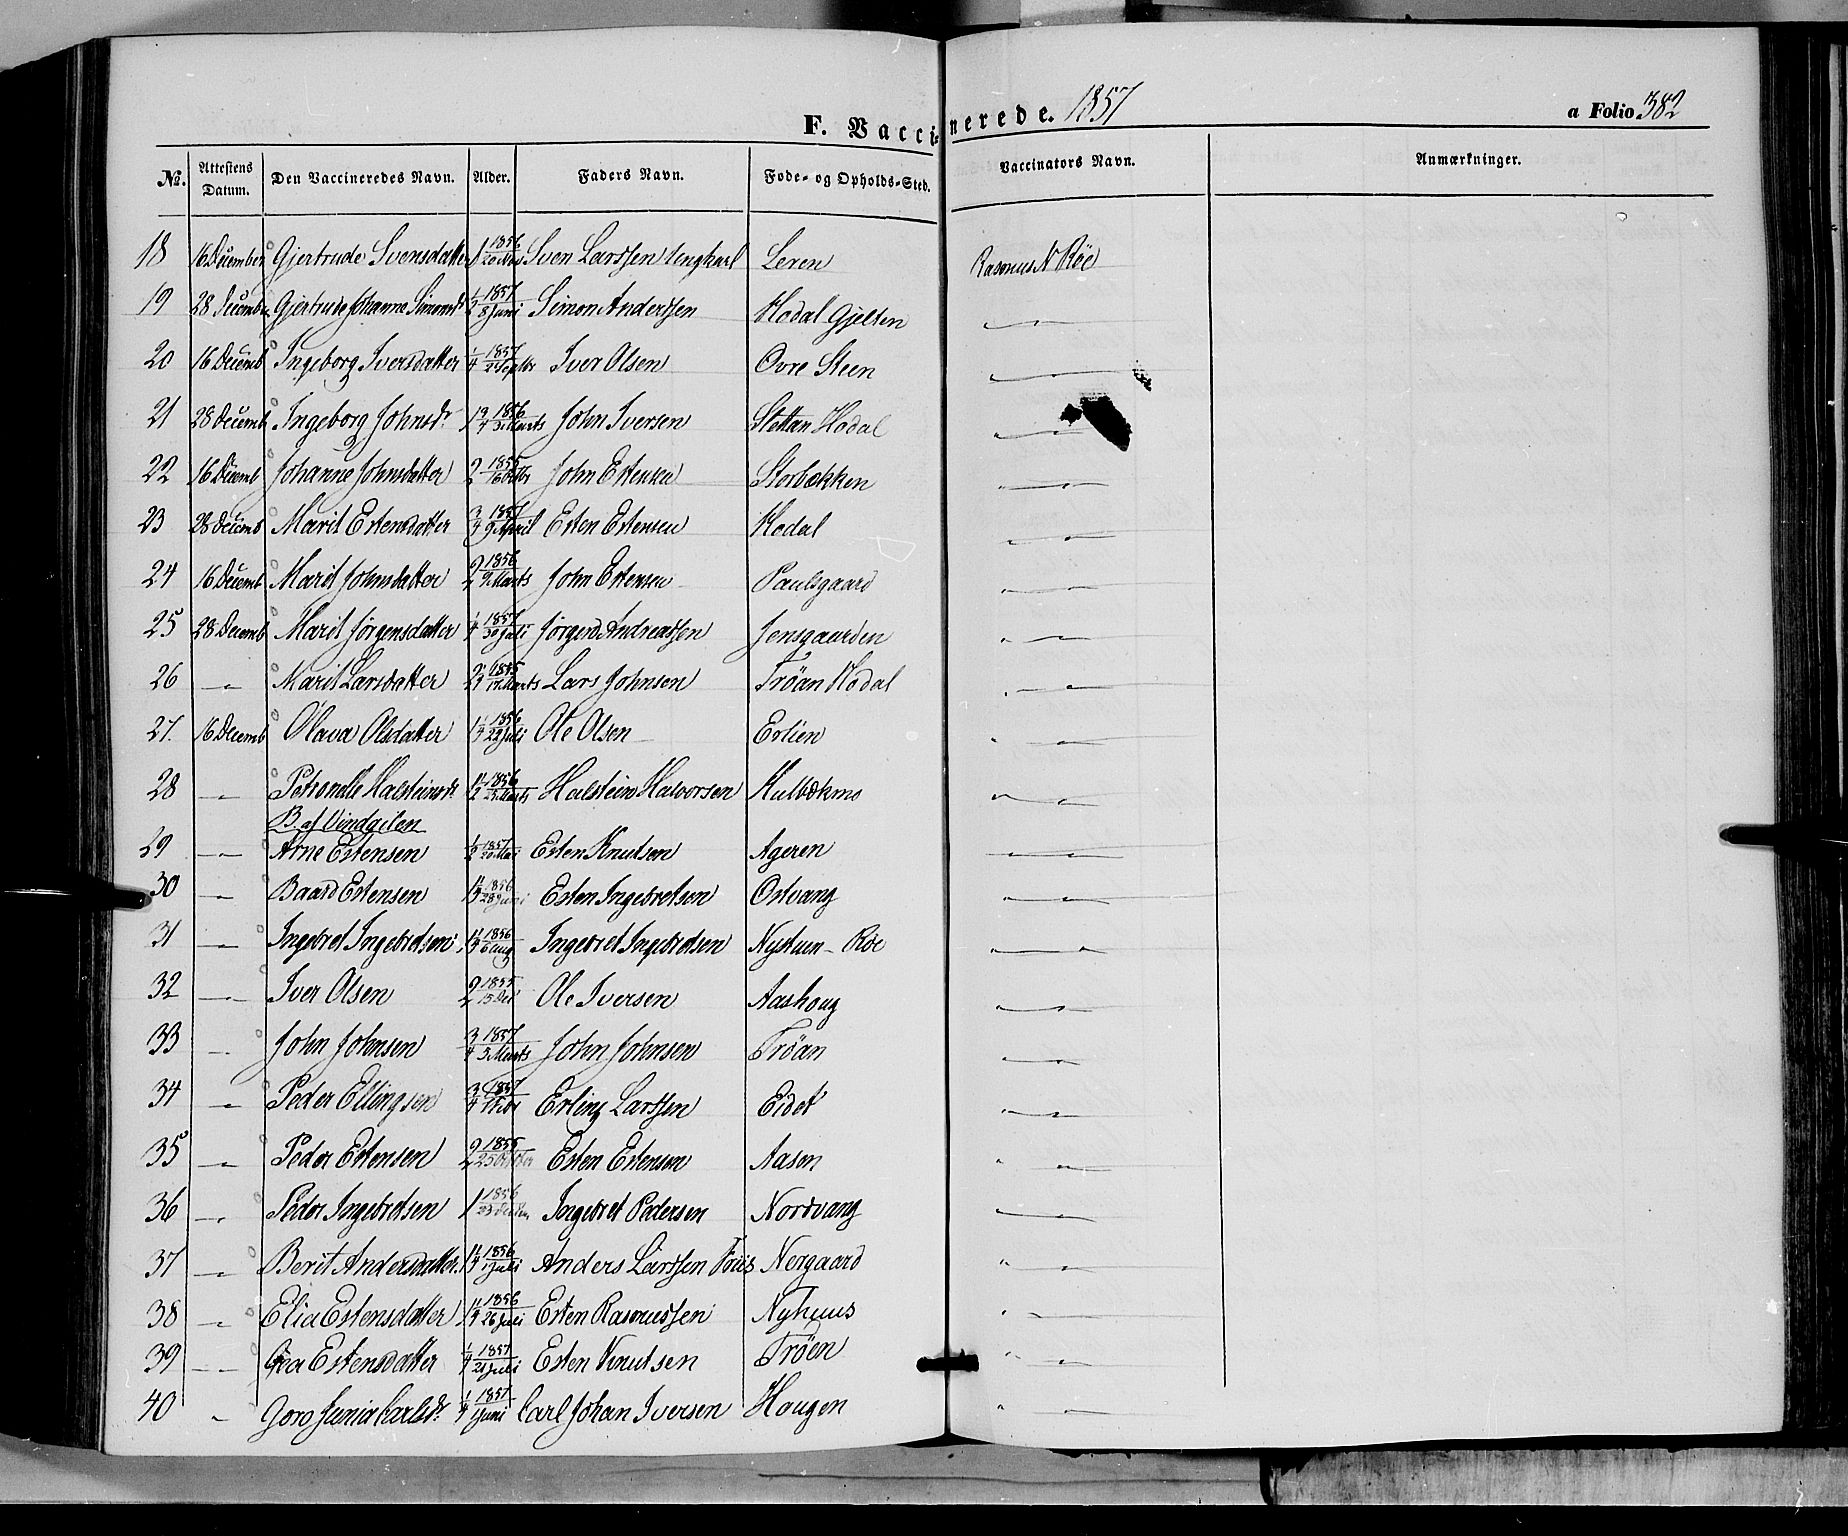 F. Vaccinerede. 1857 a Folio 382
No. Attestens Datum. Den Vaccineredes Navn. Alder. Faders Navn. Føde- og Opholds-Sted. Vaccinators Navn. Anmærkninger.
18 16 December Gjertrude Svensdatter 1 1856 20 Nov Sven Larssen Leren Rasmus N Röe
19 28 Decemb Gjertrude Johanne Simonsdr 1/2 1857 8 Juni Simon Anderssen Hodal Gjelten — " —
20 16 Decemb Ingeborg Iversdatter 1/4 1857 Septbr Iver Olsen Ovre Steen — " —
21 28 Decemb Ingeborg Johnsdr 1 3/4 1856 Marts John Iversen Stettan Hodal — " —
22 16 Decemb Johanne Johnsdatter 2 1855 16 Octbr John Estensen Storbækken — " —
23 28 Decemb Marit Estensdatter 3/4 1857 9 April Esten Estensen Hodal — " —
24 16 Decemb Marit Johnsdatter 2 1856 9 Marts John Estensen Paulsgaard — " —
25 28 Decemb Marit Jørgensdatter 1/4 1857 30 Juli Jørgen Andreassen Jensgaarden — " —
26 — " Marit Larsdatter 2 3/4 1855 17 Marts Lars Johnsen Tröan Hodal — " —
27. 16 Decemb Olava Olsdatter 1 1/4 1856 22 Juli Ole Olsen Erlien — " —
28 — " — Petronelle Halsteinsdr 1 1/2 1856 25 Marts Halstein Halvorsen Kulbækmo — " —
B. af Vindgelen
29 — " — Arne Estensen 1/2 1857 20 Mai Esten Knutsen Ageren — " —
30 — " Baard Estensen 1 1/3 1856 28 Juni Esten Ingebretsen Ostvang — " —
31 — " Ingebret Ingebretsen 1 1/3 1856 6 Aug Ingebret Ingebretsen Nystuen - Röe — " —
32 — " — Iver Olsen 2 1855 15 Dec Ole Iversen Aashoug — " —
33 — " John Johnsen 3/4 1857 3 Marts John Johnsen Tröan — " —
34 — " Peder Ellingsen 3/4 1857 Erling Larssen Eidet — " —
35 — " Peder Estensen 2 1855 25 October Esten Estensen Aasen — " —
36 — " Peder Ingebretsen 1 1856 Ingebret Pedersen Nordvang — " —
37 — " Berit Andersdatter 1 1/4 1856 1 Juli Anders Larssen Nergaard — " —
38 — " Elia Estensdatter 1 1/4 1856 26 Juli Esten Rasmussen Nyhuus — " —
39 — " — Estensdatter 1/4 1857 21 Juli Esten Knutsen Tröen — " —
40 " Goro Carlsdr 1/4 1857 1 Juni Carl Johan Iversen Haugen — " —